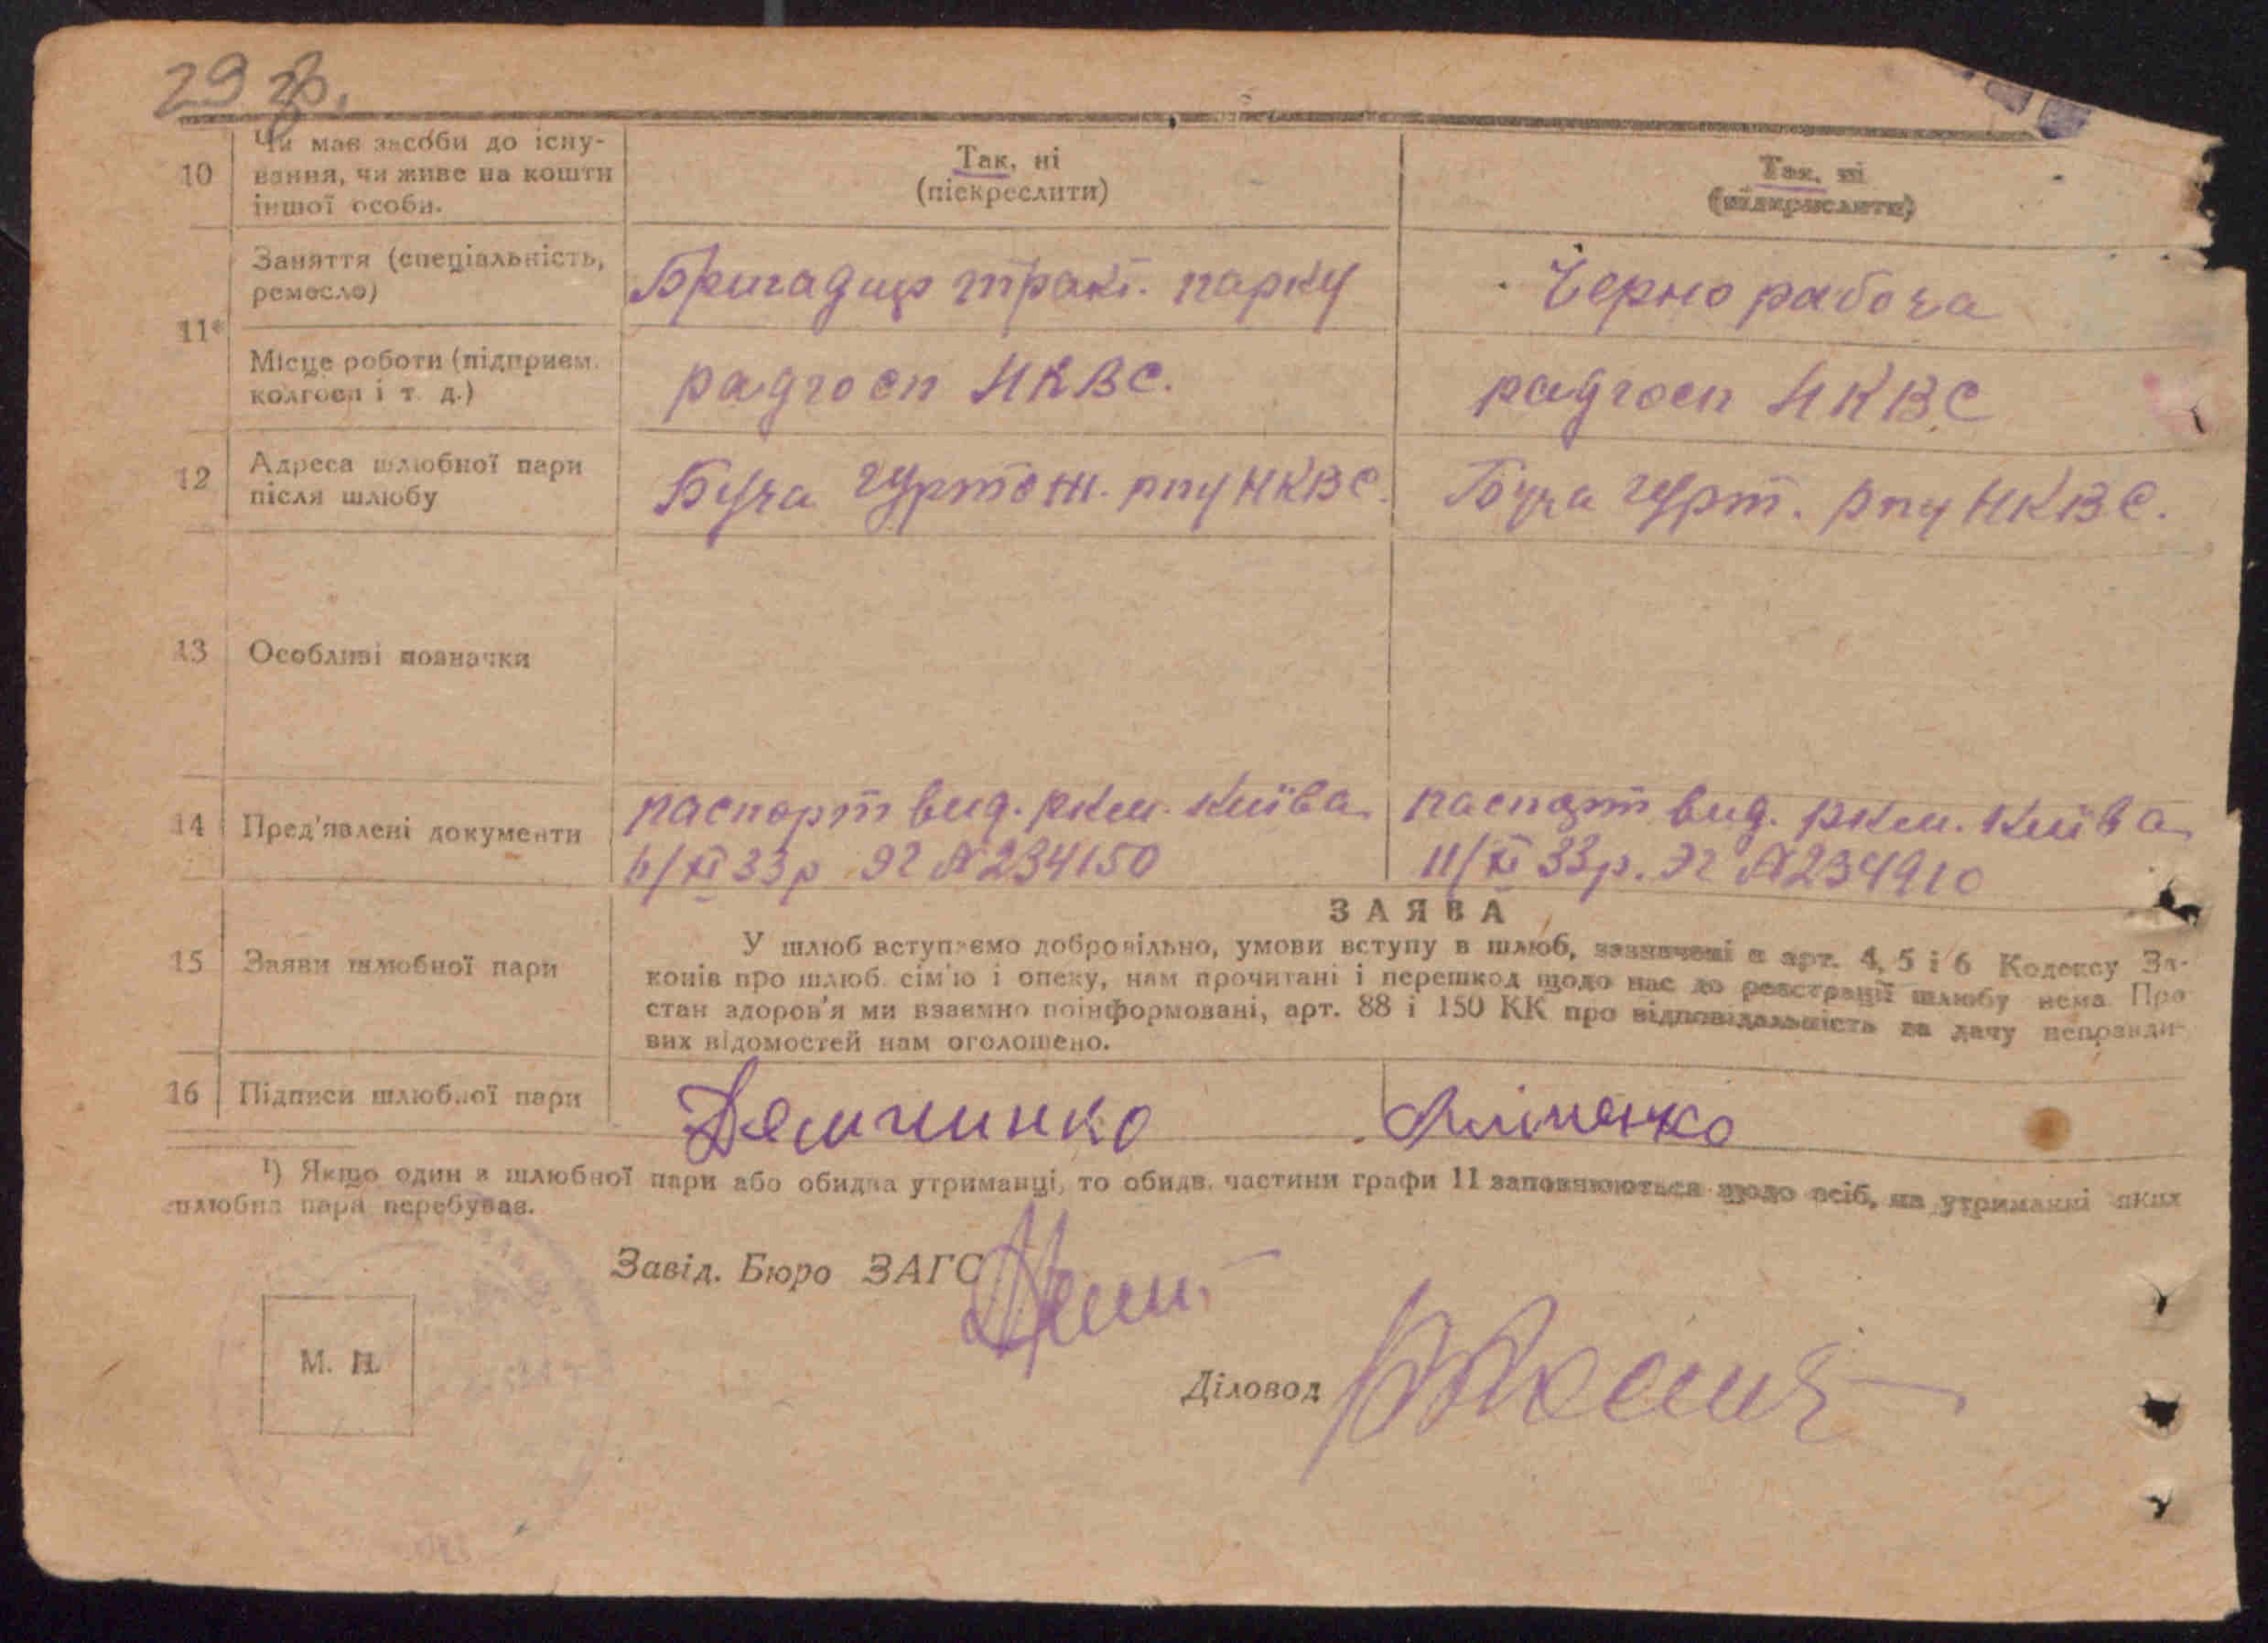 29 зв.
10 Чи має засоби до існу-
вання, чи живе на кошти
іншої особи.
Так, ні
(піскреслити)
Так, ні
(підкреслити)
11*
Заняття (спеціальність,
ремесло)
Бригадир тракт. парку
Чернорабоча
Місце роботи (підприєм.
колгосп і т. д.)
радгосп НКВС.
радгосп НКВС
12 Адреса шлюбної пари
після шлюбу
Буча гуртож. рпу НКВС.
Буча гурт. рпу НКВС.
13 Особливі позначки
14 Пред'явлені документи
паспорт вид. ркм. Київа
6/XI 33р ЭГ № 234150
паспорт вид. ркм. Київа
11/XI 33р. ЭГ № 234910
15 Заяви шлюбної пари
ЗАЯВА
У шлюб вступаємо добровільно, умови вступу в шлюб, зазначені в арт. 4, 5 і 6 Кодексу За-
конів про шлюб. сім'ю і опеку, нам прочитані і перешкод щодо нас до реєстрації шлюбу нема. Про
стан здоров'я ми взаємно поінформовані, арт. 88 і 150 КК про відповідальність за дачу неправди-
вих відомостей нам оголошено.
16 Підписи шлюбної пари
Демчинко
¹) Якщо один з шлюбної пари або обидва утриманці, то обидв. частини графи 11 заповнюються щодо осіб, на утриманні яких
шлюбна пара перебуває.
Завід. Бюро ЗАГС
М. П.
Діловод